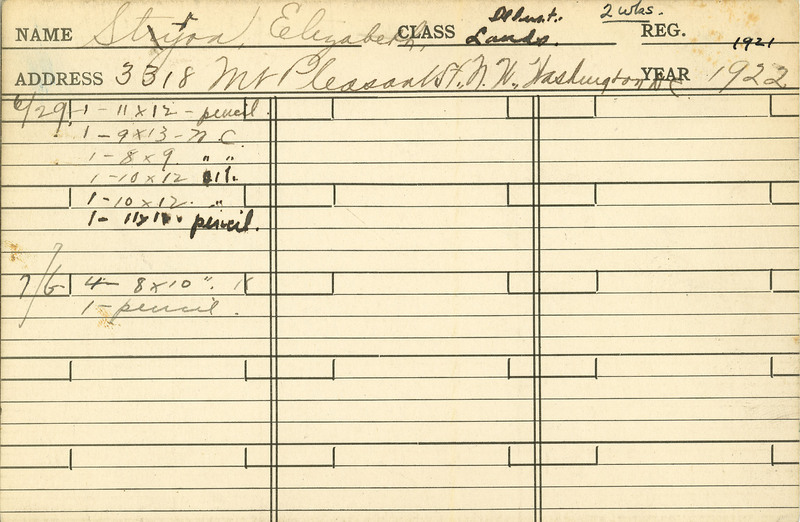 2 wks.
NAME Elizabeth, CLASS Illust. REG.
Lands. 1921
ADDRESS 3318 Mt Pleasant St., N. W., Washington D C YEAR 1922
6/29 1 - 11 x 12 - pencil.
1 - 9 x 13 - N C.
1 - 8 x 9. " "
1 - 10 x 12
1 - 10 x 12. "
1 - pencil.
7/6 4 - 8 x 10 ". K
1 - pencil.